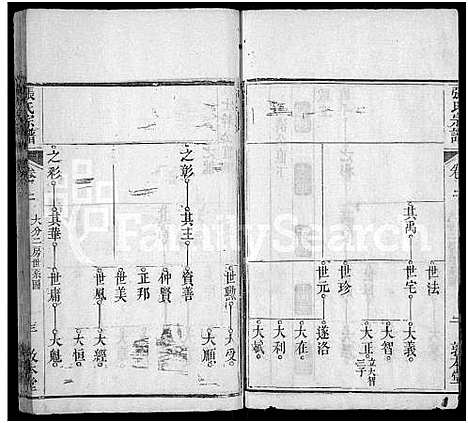 張氏宗譜
卷十
其禹
世法
世宅
世珍
世元
大義
大智
大正
立大智三子
遂洛
大在
大利
大斌
敦本堂
之彰
其主
資善
仲賢
正邦
世美
世鳳
世勲
大受
大順
大經
大恒
之彩
其華
世庸
大魁
張氏宗譜
卷十
大分二房世系圖
三
敦本堂
FamilySearch